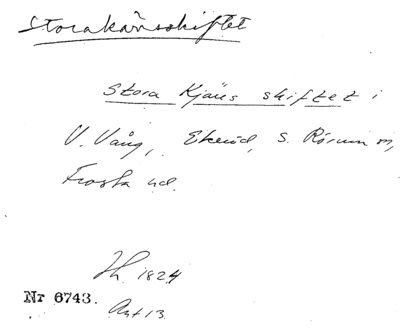 Storakärrskiftet
Stora Kjäns skiftet i
V. Vång, Ekeröd, S. Rörum m,
Frosta hd.
Jh. 1824
Nr 6743.
Akt 13.